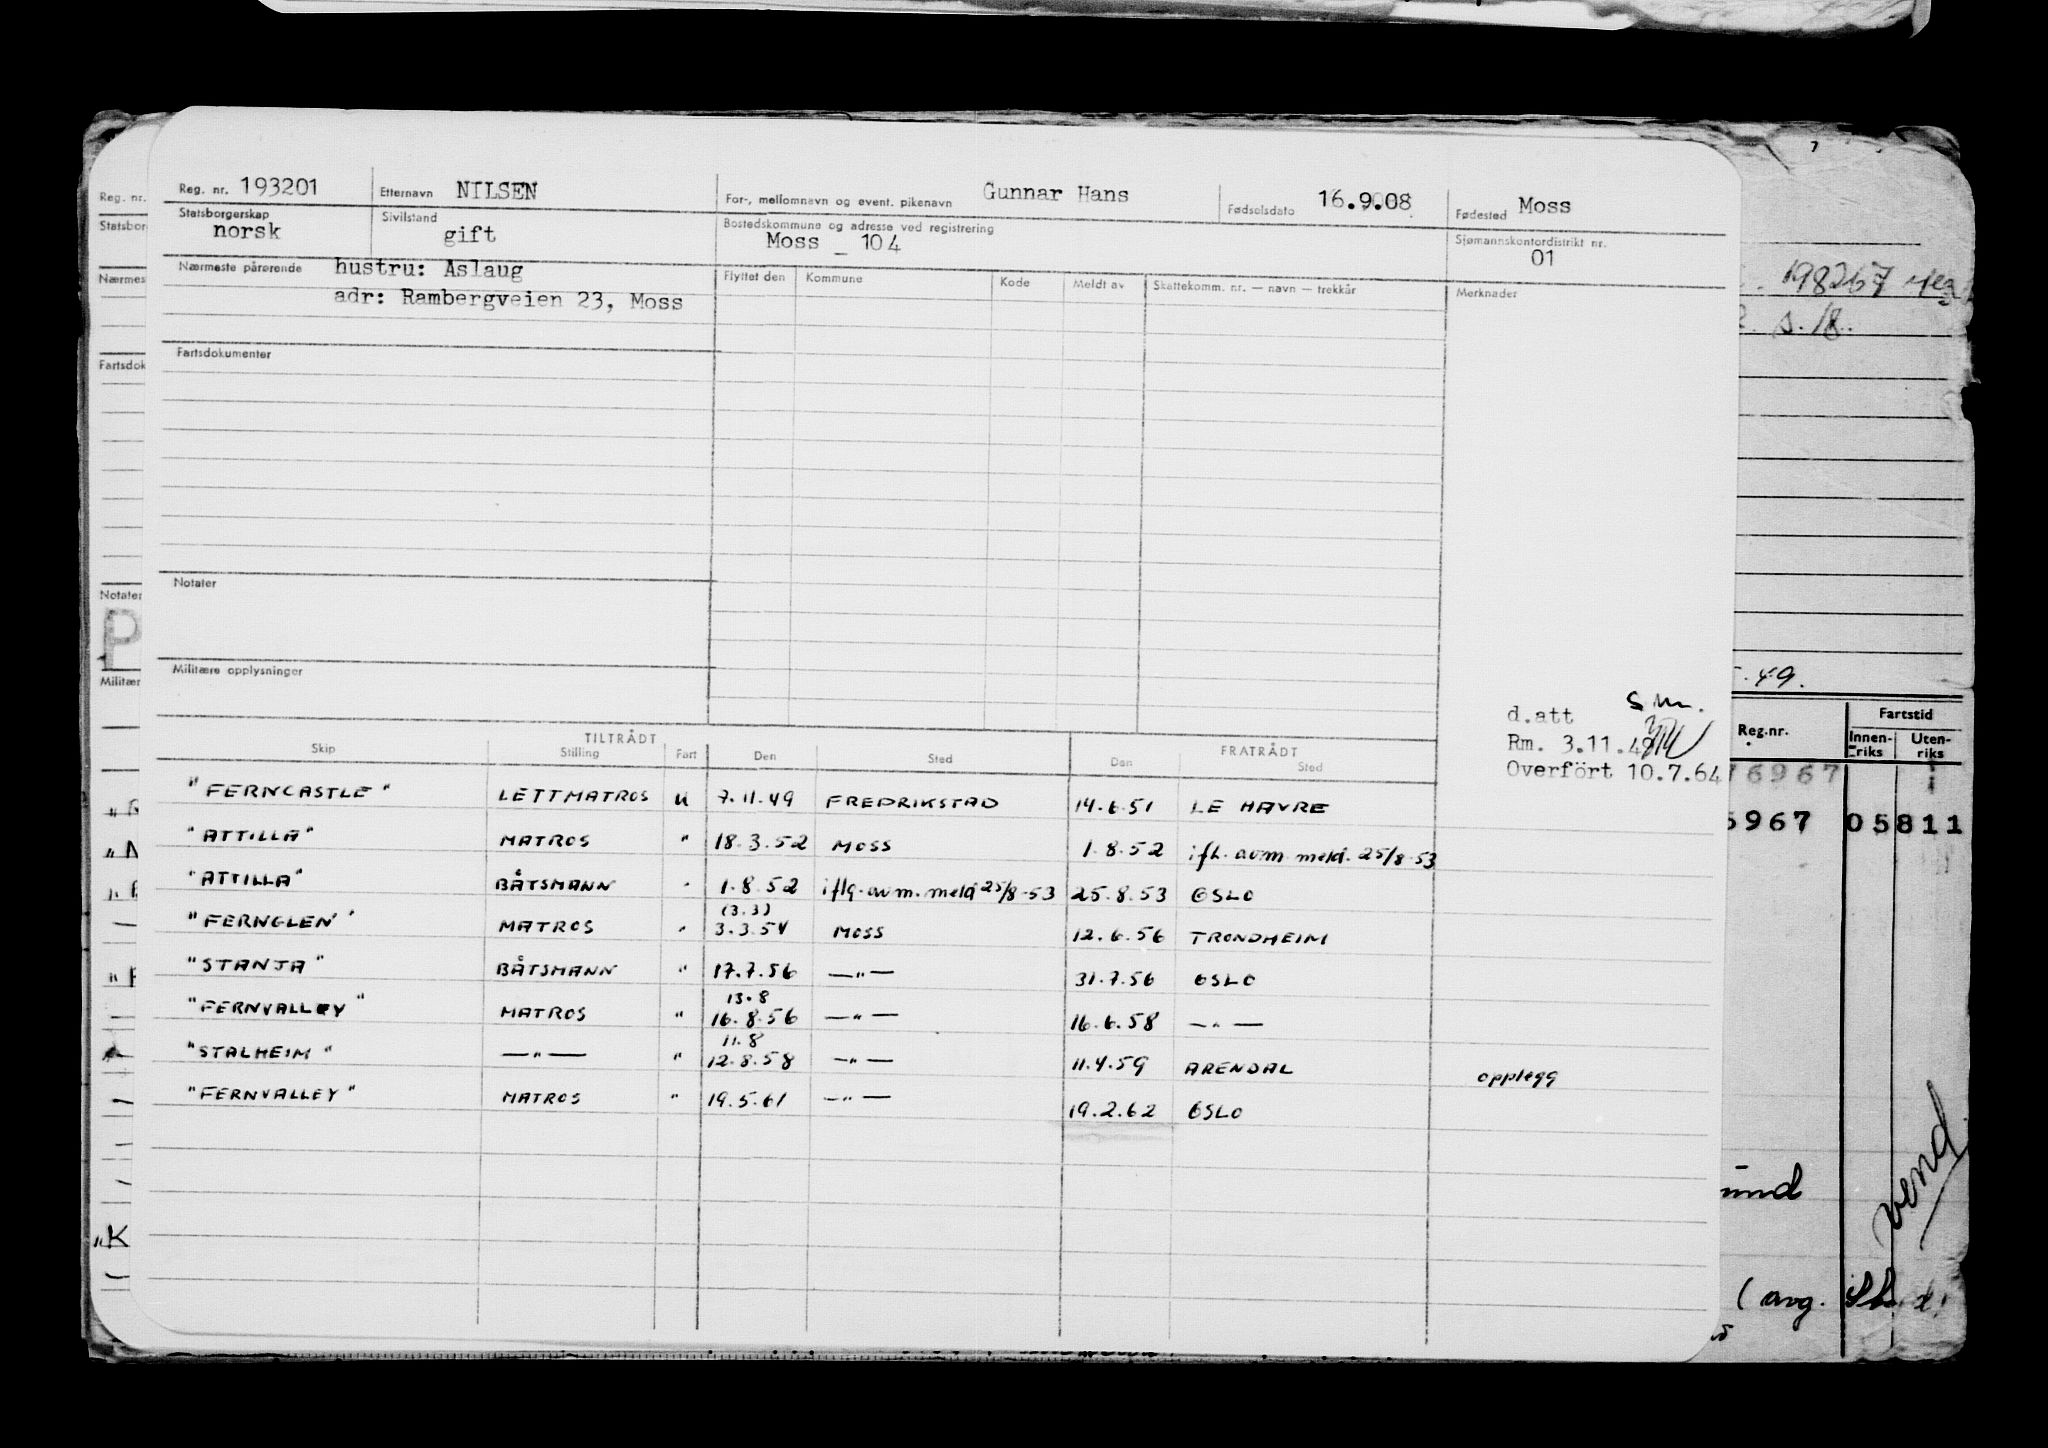 Reg. nr. 193201 Etternavn NILSEN For-, mellomnavn og event. pikenavn Gunnar Hans Fødselsdato 16.9.08 Fødested Moss
Statsborgerskap norsk Sivilstand gift Bostedskommune og adresse ved registrering Moss - 104 Sjømannskontordistrikt nr. 01
Nærmeste pårørende hustru: Aslaug Flyttet den Kommune Kode Meldt av Skattekomm. nr. — navn — trekkår Merknader
adr: Rambergveien 23, Moss
Fartsdokumenter
Notater
Militære opplysninger
d.att S.M.
Rm. 3.11.49
Overfört 10.7.64
TILTRÅDT FRATRÅDT
Skip Stilling Fart Den Sted Den Sted
"FERNCASTLE" LETTMATROS U 7.11.49 FREDRIKSTAD 14.6.51 LE HAVRE
"ATTILLA" MATROS " 18.3.52 MOSS 1.8.52 ifl. avm. meld. 25/8-53
"ATTILLA" BÅTSMANN " 1.8.52 iflg. avm. meld 25/8-53 25.8.53 OSLO
(3.3)
"FERNGLEN" MATROS " 3.3.54 MOSS 12.6.56 TRONDHEIM
"STANJA" BÅTSMANN " 17.7.56 —"— 31.7.56 OSLO
13.8
"FERNVALLEY" MATROS " 16.8.56 —"— 16.6.58 —"—
11.8
"STALHEIM" —"— " 12.8.58 —"— 11.4.59 ARENDAL opplegg
"FERNVALLEY" MATROS " 19.5.61 —"— 19.2.62 OSLO
Reg. nr.
Statsbor
Nærmes
Fartsdok
Notater
P
Militær
"K
198267
s. 18.
49.
Reg.nr. Fartstid
Innen-riks Uten-riks
76967
6967 05811
und
vend
( avg.